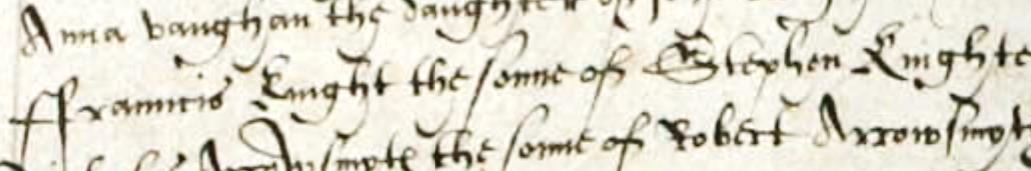 Anna vaughan the daughter of
ffranncis Knight the sonne of Stephen Knighte
Arrowsmyth the sonne of Robert Arrowsmyt